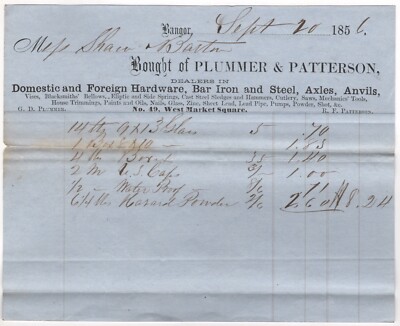 Bangor, Sept 20 1856.
Mess Shaw &
Bought of PLUMMER & PATTERSON,
DEALERS IN
Domestic and Foreign Hardware, Bar Iron and Steel, Axles, Anvils,
Vises, Blacksmiths' Bellows, Eliptic and Side Springs, Cast Steel Sledges and Hammers, Cutlery, Saws, Mechanics' Tools,
House Trimmings, Paints and Oils, Nails, Glass, Zinc, Sheet Lead, Lead Pipe, Pumps, Powder, Shot, &c.
G. D. PLUMMER. No. 49, West Market Square. R. F. PATTERSON.
9x13 Glass 5 70
1 1.83
1.40
2 M Caps 3/ 1.00
1/2 71
6 1/4 lbs Hazard Powder 2/6 2 60 $8.24